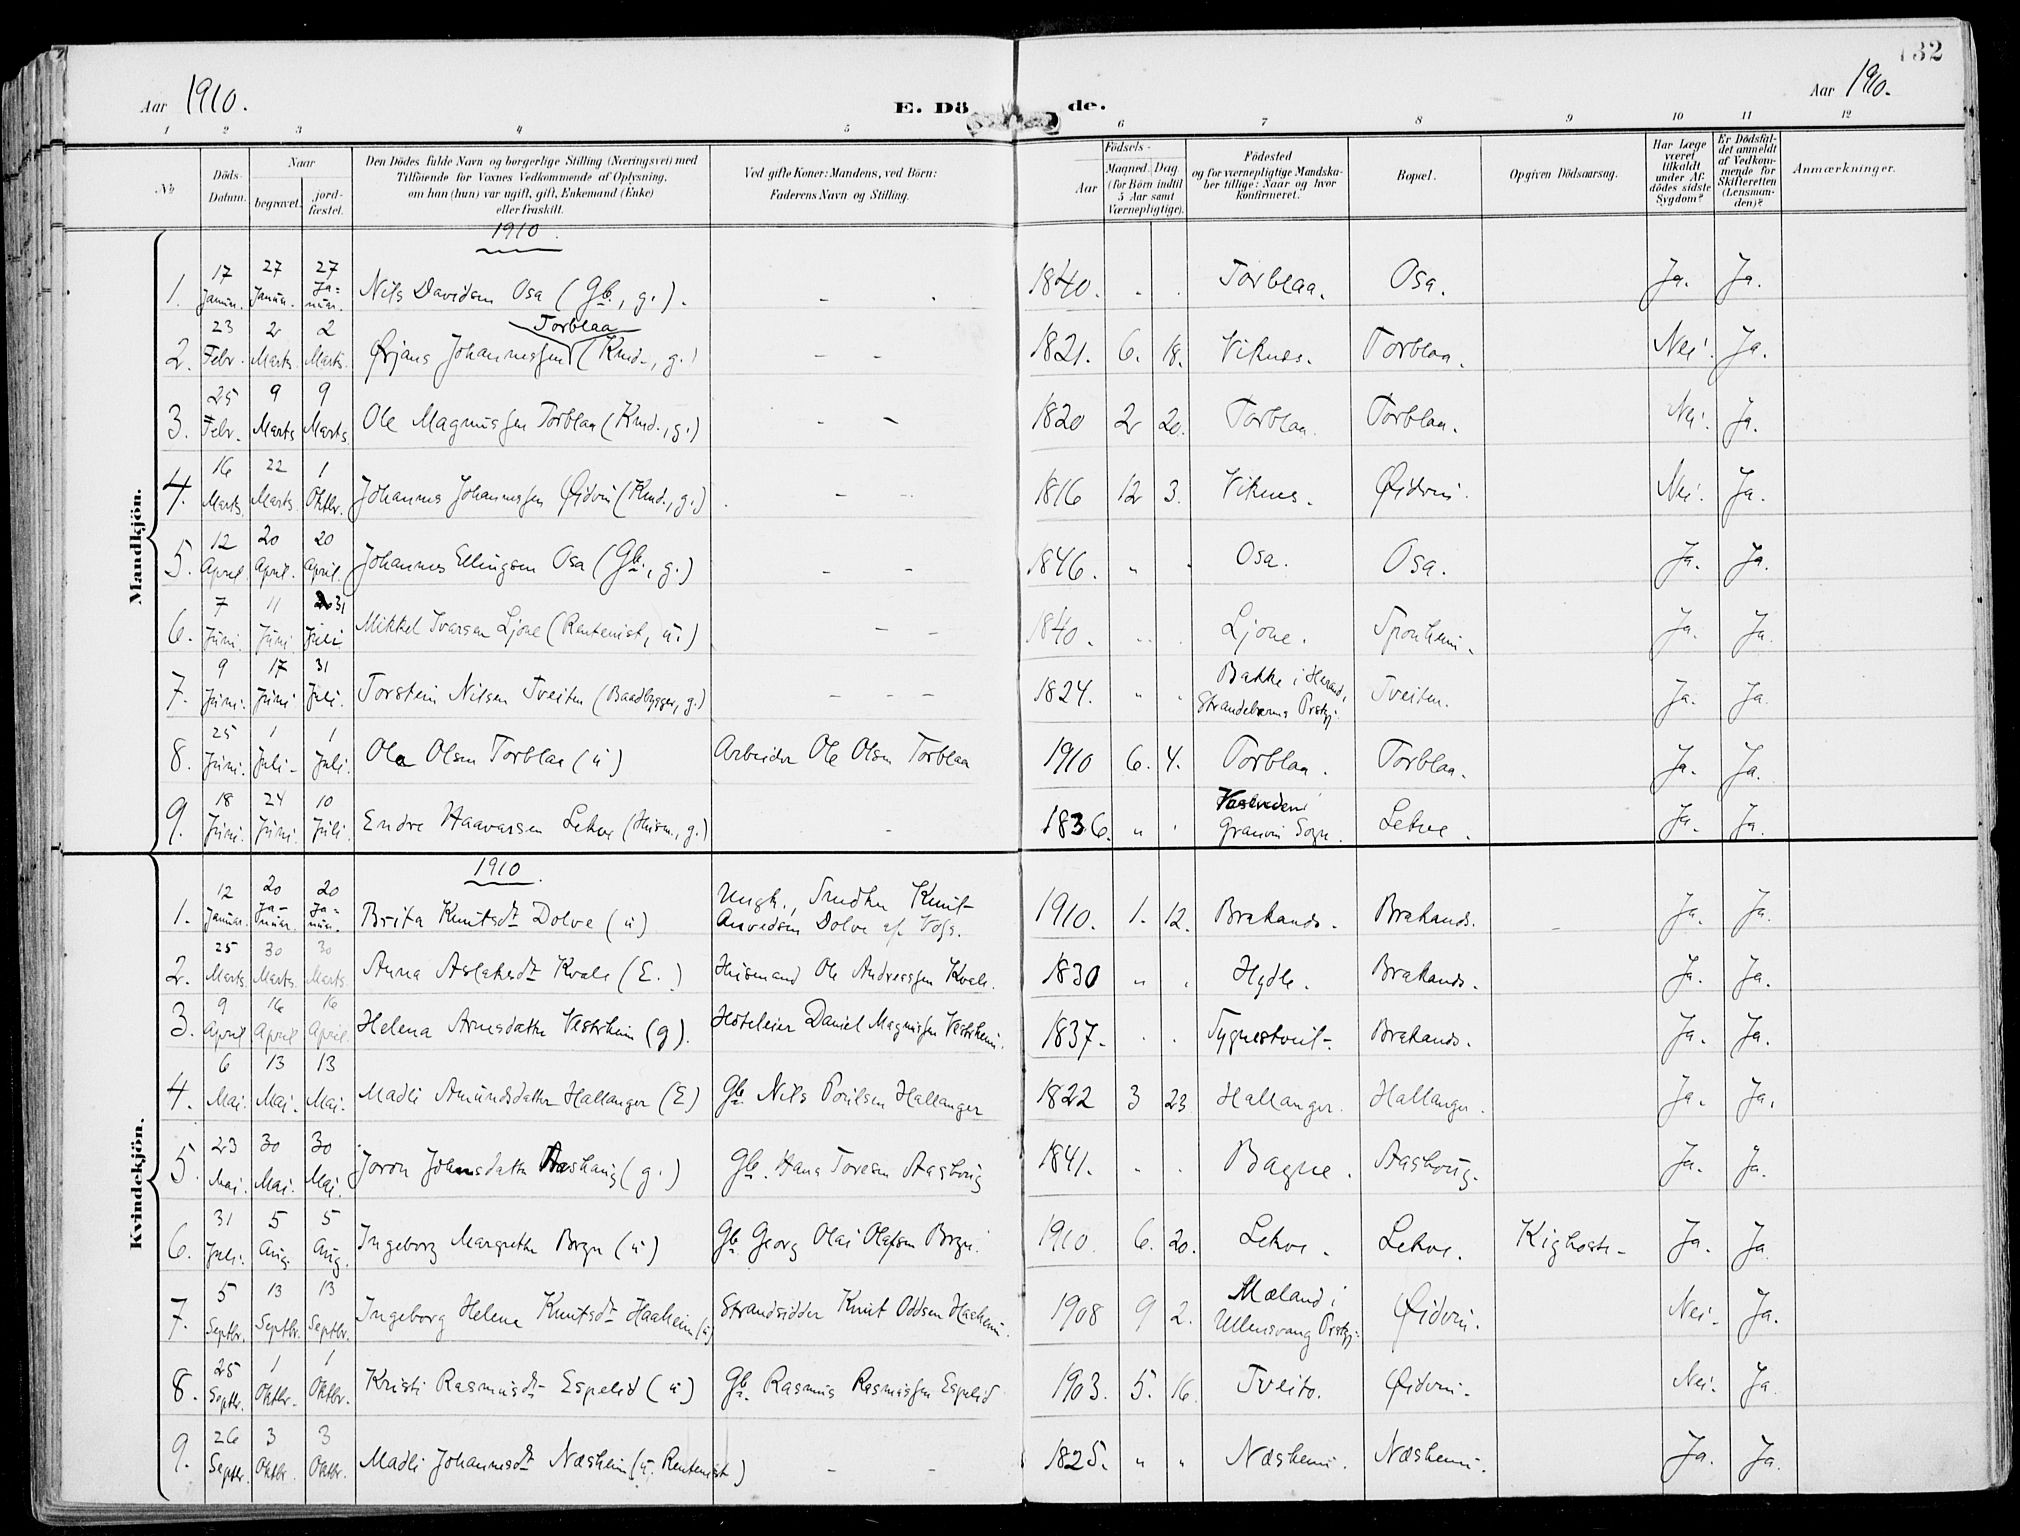 132
Aar 1910.
E. Dö de.
Aar 1910.
1 2 3 4 5 6 7 8 9 10 11 12
No
Döds-Datum.
Naar
begravet.
jord-fæstet.
Den Dödes fulde Navn og borgerlige Stilling (Næringsvei) med
Tilföiende for Voxnes Vedkommende af Oplysning,
om han (hun) var ugift, gift, Enkemand (Enke)
eller fraskilt.
Ved gifte Koner: Mandens, ved Börn:
Faderens Navn og Stilling.
Födsels-
Aar
Maaned. Dag
(for Börn indtil
5 Aar samt
Værnepligtige).
Födested
og for værnepligtige Mandska-
ber tillige: Naar og hvor
konfirmeret.
Bopæl.
Opgiven Dödsaarsag.
Har Læge
været
tilkaldt
under Af-
dödes sidste
Sygdom?
Er Dödsfal-
det anmeldt
af Vedkom-
mende for
Skifteretten
(Lensman-
den)?
Anmærkninger.
Mandkjön.
1910
1. 17 Januar. 27 Januar. 27 Januar. Nils Davidsen Osa (Gb., g.). - - 1840. Torblaa. Osa. Ja. Ja.
2. 23 Febr. 2 Marts. 2 Marts. Ørjans Johannessen Torblaa (Kmd., g.) - - 1821. 6. 18. Viknes. Torblaa. Nei. Ja.
3. 25 Febr. 9 Marts 9 Marts Ole Magnussen Torblaa (Kmd., g.) - - 1820 2 20. Torblaa. Torblaa. Nei. Ja.
4. 16 Marts. 22 Marts. 1 Oktbr. Johannes Johannessen Øidvin (Kmd., g.) - - 1816 12 3. Viknes. Øidvin. Nei. Ja.
5. 12 April 20 April. 20 April. Johannes Ellingsen Osa (Gb., g.) - - 1846. " " Osa. Osa. Ja. Ja.
6. 7 Juni. 11 Juni 31 Juli Mikkel Ivarsen Ljone (Rentenist, u.) - - 1840. Ljone. Sponheim. Ja. Ja.
7. 9 Juni. 17 Juni 31 Juli. Torstein Nilsen Tveiten (Baadbygger, g.) - - - 1824. " " Bakke i Herand, Strandebarms Prstgj. Tveiten. Ja. Ja
8. 25 Juni. 1 Juli. 1 Juli. Ola Olsen Torblaa (u) Arbeider Ole Olsen Torblaa 1910 6. 4. Torblaa. Torblaa. Ja. Ja.
9. 18 Juni. 24 Juni. 10 Juli. Endre Haavarsen Lekve (Husm., g.) - 1836. " " Granvin Sogn. Lekve. Ja. Ja.
Kvindekjön.
1910.
1. 12 Januar. 20 Januar. 20 Januar. Brita Knutsdt Dolve (u) Ungk., Snedker Knut Anvedsen Dolve af Voss. 1910. 1. 12. Brakanæs. Brakanæs. - Ja. Ja.
2. 25 Marts. 30 Marts. 30 Marts. Anna Aslaksdt Kvale (E.) Husmand Ole Andreassen Kvale. 1830 " " Hydle. Brakanæs. Ja. Ja.
3. 9 April 16 April 16 April. Helena Arnesdatter Vestrheim (g). Hoteleier Daniel Magnussen Vestrheim. 1837. Syguestveit. Brakanæs. Ja. Ja.
4. 6 Mai. 13 Mai. 13 Mai. Madli Amundsdatter Hallanger (E) Gb. Nils Poulsen Hallanger 1822 3 23 Hallanger. Hallanger. Ja. Ja.
5. 23 Mai. 30 Mai. 30 Mai. Joron Johnsdatter Aashaug (g.) Gb. Hans Toresen Aashaug 1841. " " Bagne. Aashoug. Ja. Ja.
6. 31 Juli. 5 Aug. 5 Aug. Ingeborg Margrethe Børge (u) Gb. Georg Olai Olafsen Børge. 1910. 6. 20. Lekve. Lekve. Kighoste. Ja. Ja
7. 5 Septbr. 13 Septbr. 13 Septbr. Ingeborg Helena Knutsdt Haaheim (u) Strandsidder Knut Oddsen Haaheim. 1908 9 2. Mæland i Ullensvang Prstgj. Øidvin. Nei. Ja.
8. 25 Septbr. 1 Oktbr. 1 Oktbr. Kristi Rasmusdt Espelid (u) Gb. Rasmus Rasmussen Espelid 1903. 5. 16. Tveito. Øidvin. Nei. Ja.
9. 26 Septbr. 3 Oktbr. 3 Oktbr. Madli Johannesdt Næsheim (u. Rentenist) - - 1825. " " Næsheim. Næsheim. Ja. Ja.